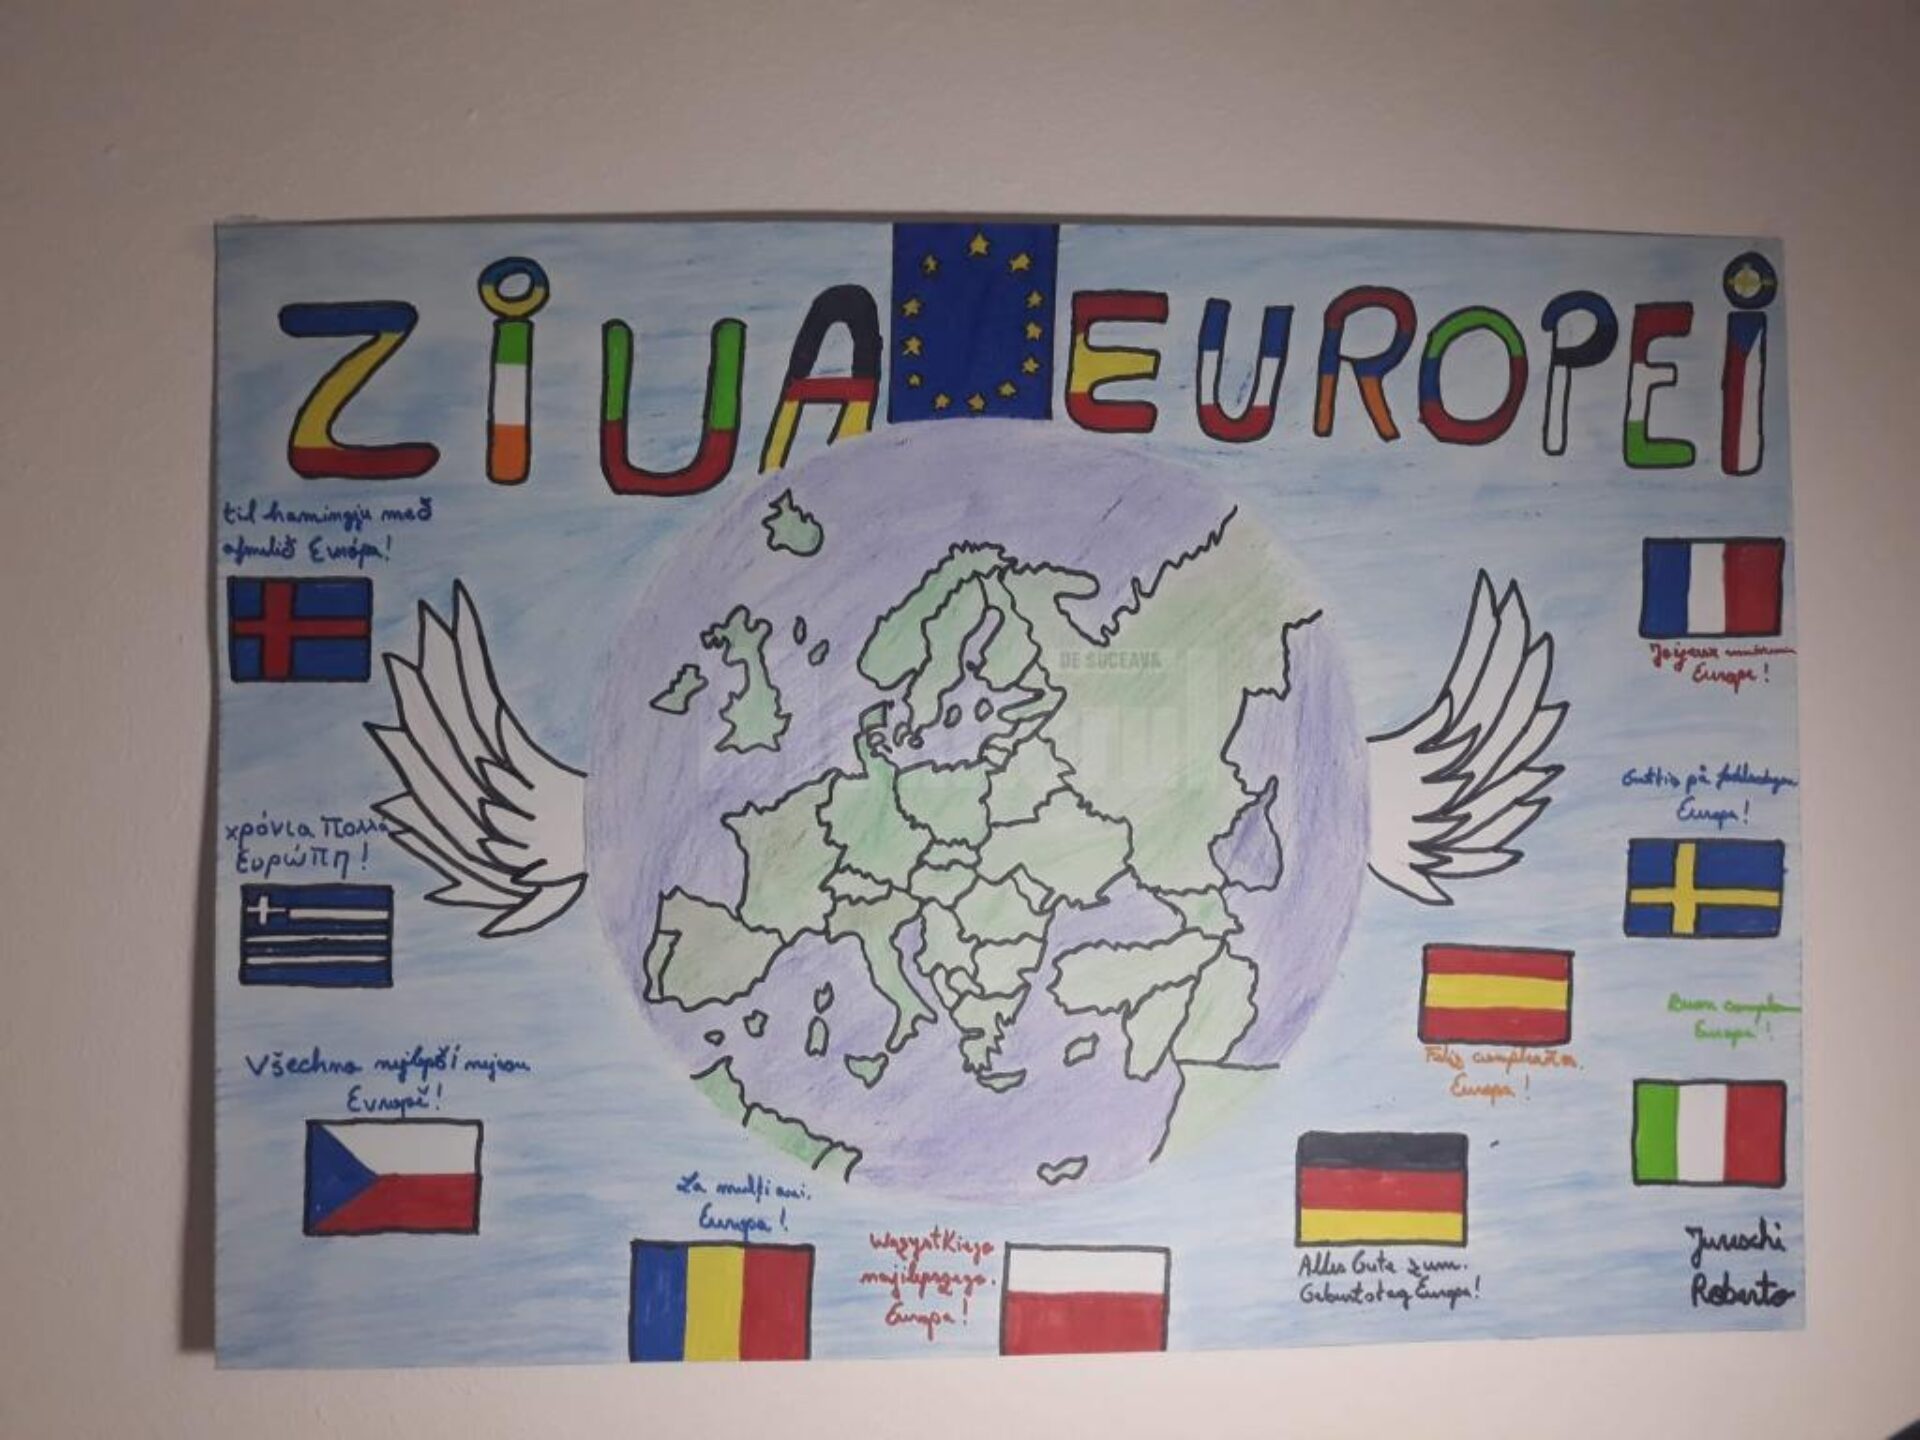 ZIUA EUROPEI
til hamingju með
afmælið Európa!
χρόνια πολλά
Ευρώπη!
Všechno nejlepší
Evropě!
La mulți ani.
Europa!
Wszystkiego
najlepszego.
Europa!
Alles Gute zum.
Geburtstag Europa!
Feliz cumpleaños.
Europa!
Joyeux
Europe!
Grattis på födelsedagen
Europa!
Buon
Europa!
Roberto
DE SUCEAVA